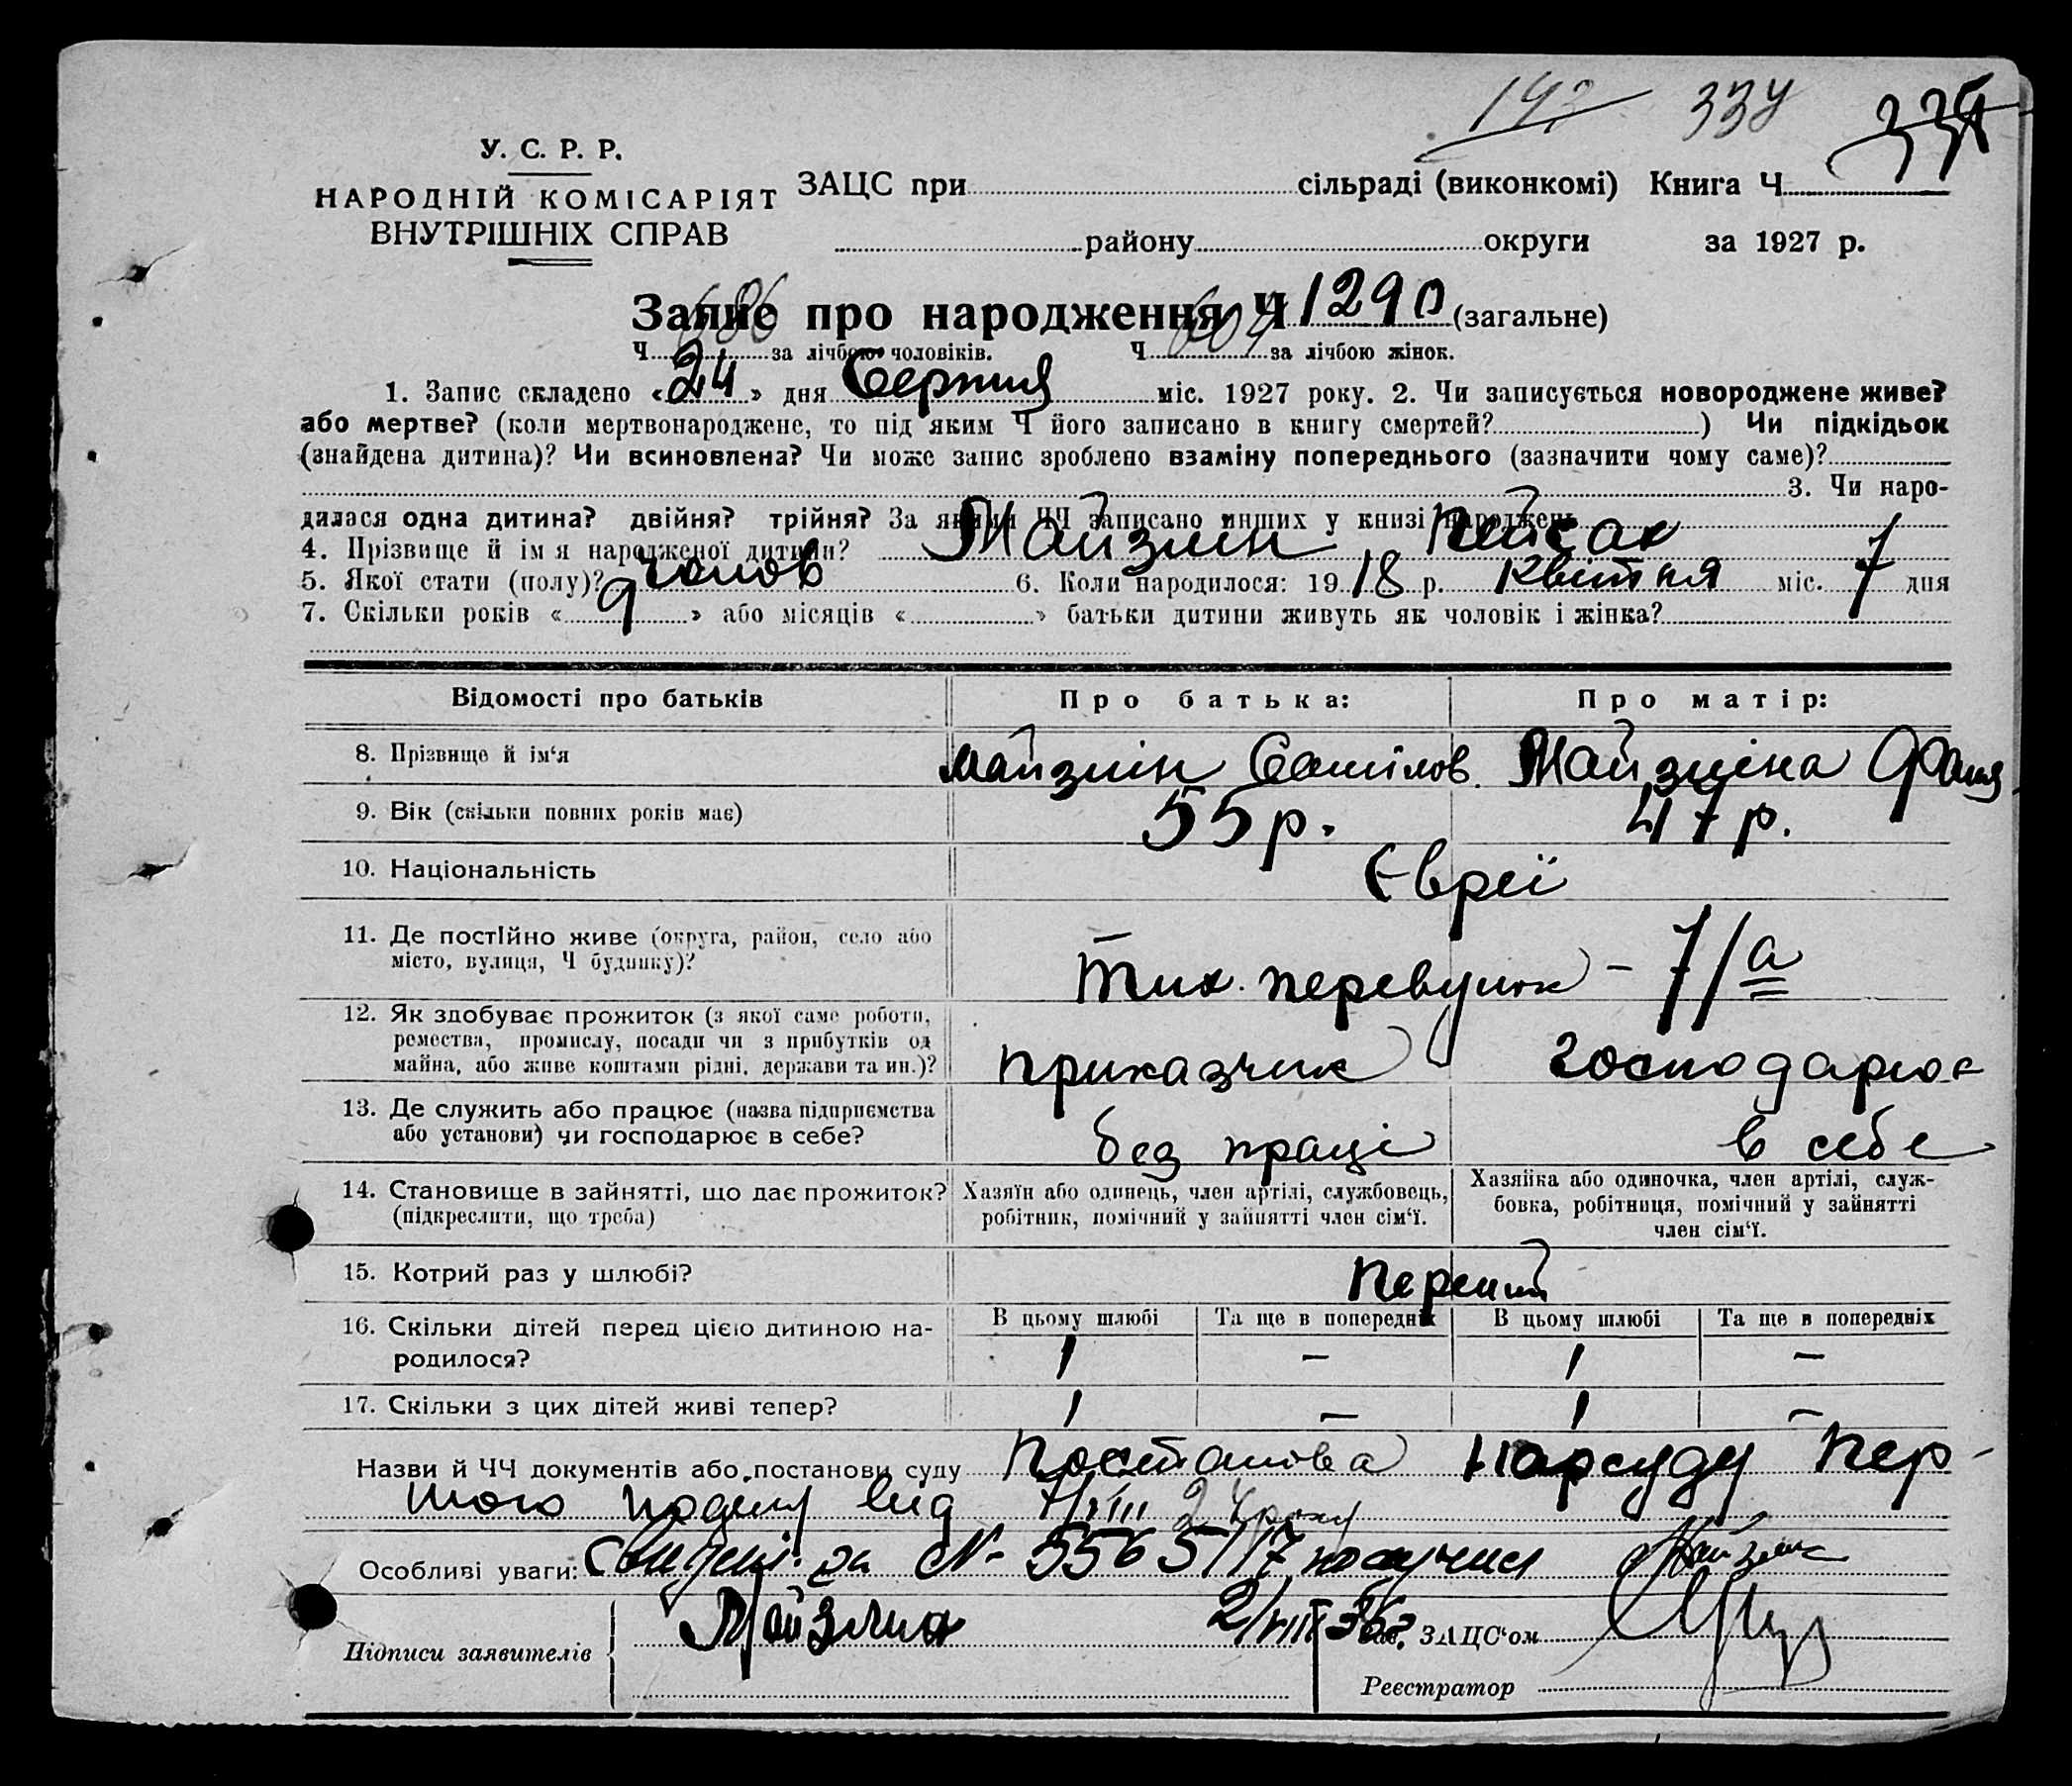 334
У. С. Р. Р.
НАРОДНІЙ КОМІСАРІЯТ
ВНУТРІШНІХ СПРАВ
ЗАЦС при сільраді (виконкомі) Книга Ч
району округи за 1927 р.
Запис про народження Ч 1290 (загальне)
Ч 686 за лічбою чоловіків. Ч 604 за лічбою жінок.
1. Запис складено «24» дня Серпня міс. 1927 року. 2. Чи записується новороджене живе?
або мертве? (коли мертвонароджене, то під яким Ч його записано в книгу смертей? ) Чи підкідьок
(знайдена дитина)? Чи всиновлена? Чи може запис зроблено взаміну попереднього (зазначити чому саме)?
3. Чи наро-
дилася одна дитина? двійня? трійня? За якими ЧЧ записано инших у книзі народжень
4. Прізвище й ім я народженої дитини? Майзлин Пейсах
5. Якої стати (полу)? чолов 6. Коли народилося: 1918 р. квітня міс. 7 дня
7. Скільки років «9» або місяців « » батьки дитини живуть як чоловік і жінка?
Відомості про батьків Про батька: Про матір:
8. Прізвище й ім‘я Майзлін Майзліна Фаня
9. Вік (скільки повних років має) 55 р. 47 р.
10. Національність Євреї
11. Де постійно живе (округа, район, село або
місто, вулиця, Ч будинку)? Тих. перевулок – 7/а
12. Як здобуває прожиток (з якої саме роботи,
ремества, промислу, посади чи з прибутків од
майна, або живе коштами рідні, держави та ин.)? приказчик господарює
13. Де служить або працює (назва підприємства
або установи) чи господарює в себе? без праці в себе
14. Становище в зайнятті, що дає прожиток?
(підкреслити, що треба)
Хазяїн або одинець, член артілі, службовець,
робітник, помічний у зайнятті член сім‘ї.
Хазяйка або одиночка, член артілі, служ-
бовка, робітниця, помічний у зайнятті
член сім‘ї.
15. Котрий раз у шлюбі? Перший
16. Скільки дітей перед цією дитиною на-
родилося?
В цьому шлюбі Та ще в попередніх В цьому шлюбі Та ще в попередніх
1 – 1 –
17. Скільки з цих дітей живі тепер? 1 – 1 –
Назви й ЧЧ документів або постанови суду Постанова Нарсуду Пер-
шого від 24 року
Особливі уваги: за N- получил
Підписи заявителів Майзлин 2/VIII 36 Зав. ЗАЦС‘ом
Реєстратор